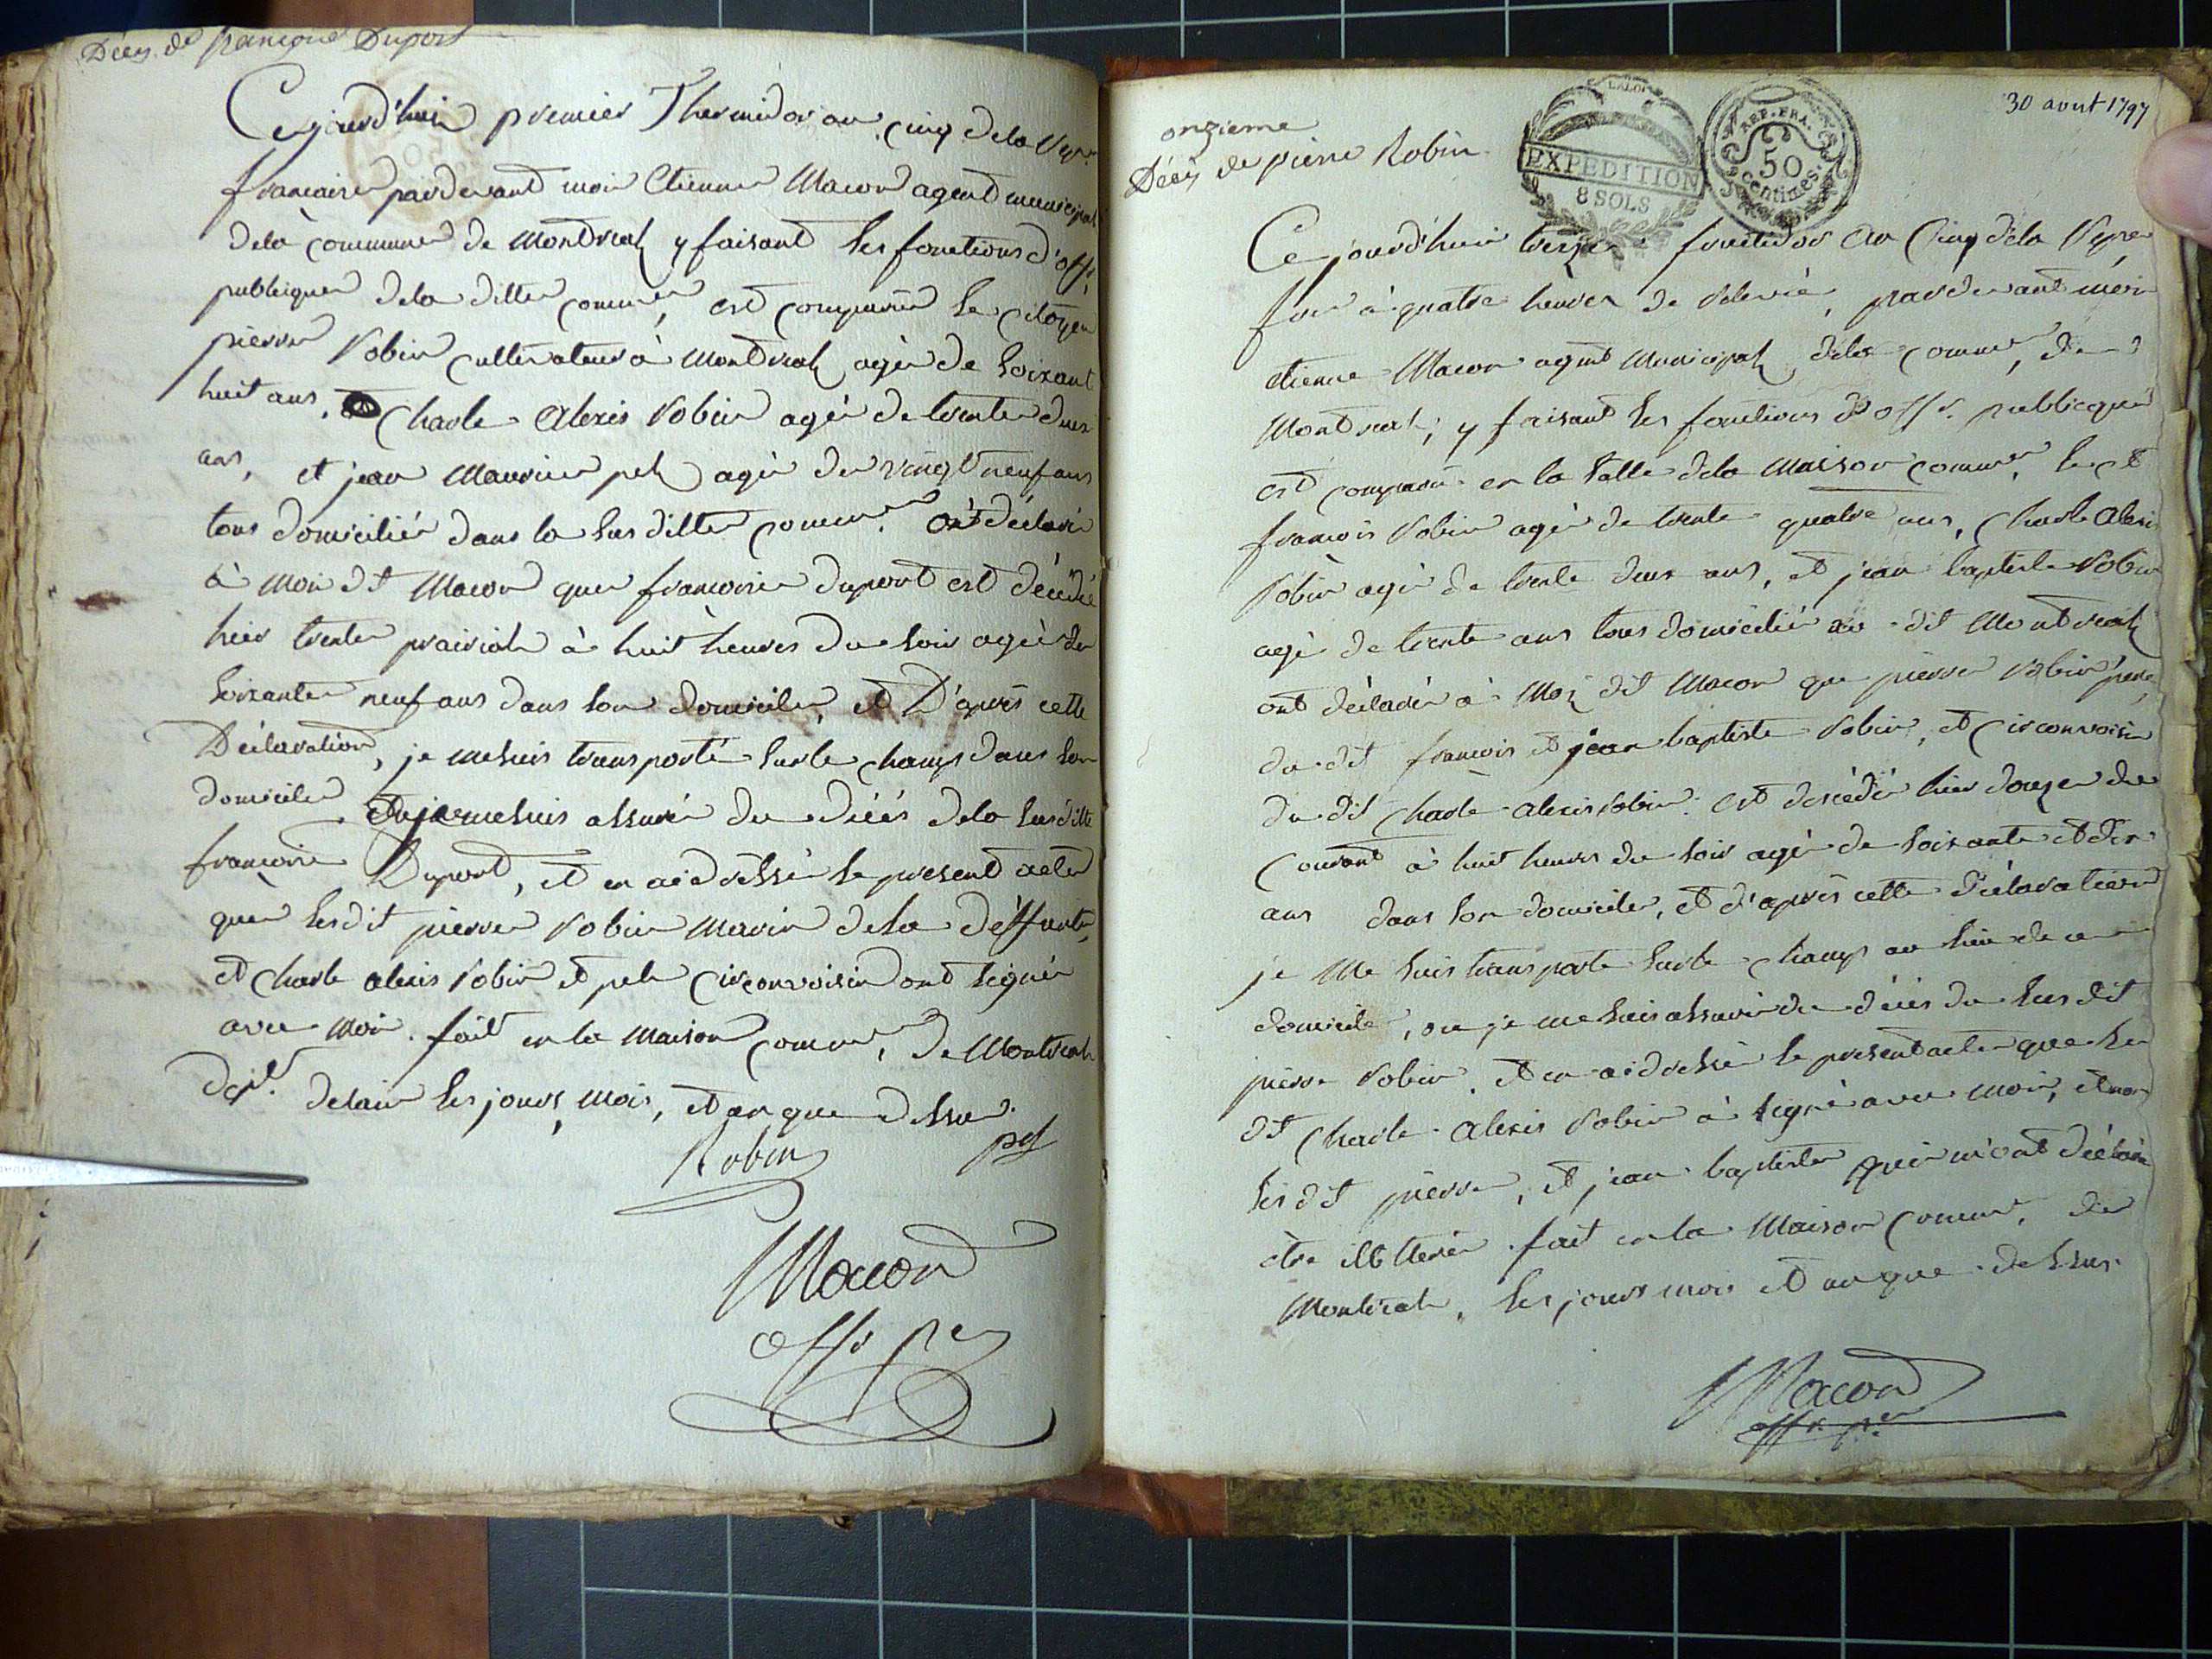 Décès de françoise Dupont
Cejourd'hui premier Thermidor an cinq dela Repe
francaise pardevant moi Etienne Macon agent municipal
dela commune de Montreal y faisant les fonctions d'offr
publique dela ditte comune, est comparu le citoyen
pierre Robin cultivateur à Montreal agé de soixant
huit ans, Charle Alexis Robin agé de trente deux
ans, et jean Maurice pel agé de vingt neuf ans
tous domicilié dans la susditte comune. ont déclaré
à moi dt Macon que francoise dupont est décédé
hier trente prairial à huit heures du soir agée de
soixante neuf ans dans son domicile, et D'aprés cette
Déclaration, je me suis transporté surle champs dans son
domicile et je me suis assuré du décés dela susditte
francoise Dupont, et en ai dréssé le present acte
que lesdit pierre Robin mari dela déffunte,
et charle alexis Robin et pel circonvoisin ont signé
avec moi. fait en la maison comune, de Montreal
dept. delain les jours, mois, et an que dessus.
Robin pel
Macon
offr pe
30 aout 1797
onzieme
Décés de pierre Robin
LA LOI
EXPEDITION
8 SOLS
REP. FRA.
50
centimes.
Cejourd'hui treize fructidor an Cinq dela Repe
fse à quatre heures de relevé, pardevant moi
etienne Macon agent municipal dela comune, de
Montreal, y faisant les fonctions d'offr. publicque
est comparu en la salle dela maison comune, le ct
francois Robin agé de trente quatre ans, Charle Alexis
Robin agé de trente deux ans, et jean baptiste Robin
agé de trente ans tous domicilié au dit Montreal
ont déclaré à moi dit Macon que pierre Robin pere,
du dit francois et jean baptiste Robin, et circonvoisin
du dit charle alexis robin. est decédé hier douze du
Courant à huit heures du soir agé de soixante et dix
ans dans son domicile, et d'aprés cette déclaration
je me suis transporté surle champs au lieu de ce
domicile, ou je me suis assuré du décés du susdit
pierre Robin, et en ai dressé le present acte que le
dt Charle Alexis Robin à signé avec moi, et non
lesdit pierre, et jean baptiste qui m'ont déclaré
être illetteré. fait en la maison comune, de
Montreal, les jours mois et an que dessus.
Macon
offr. pe